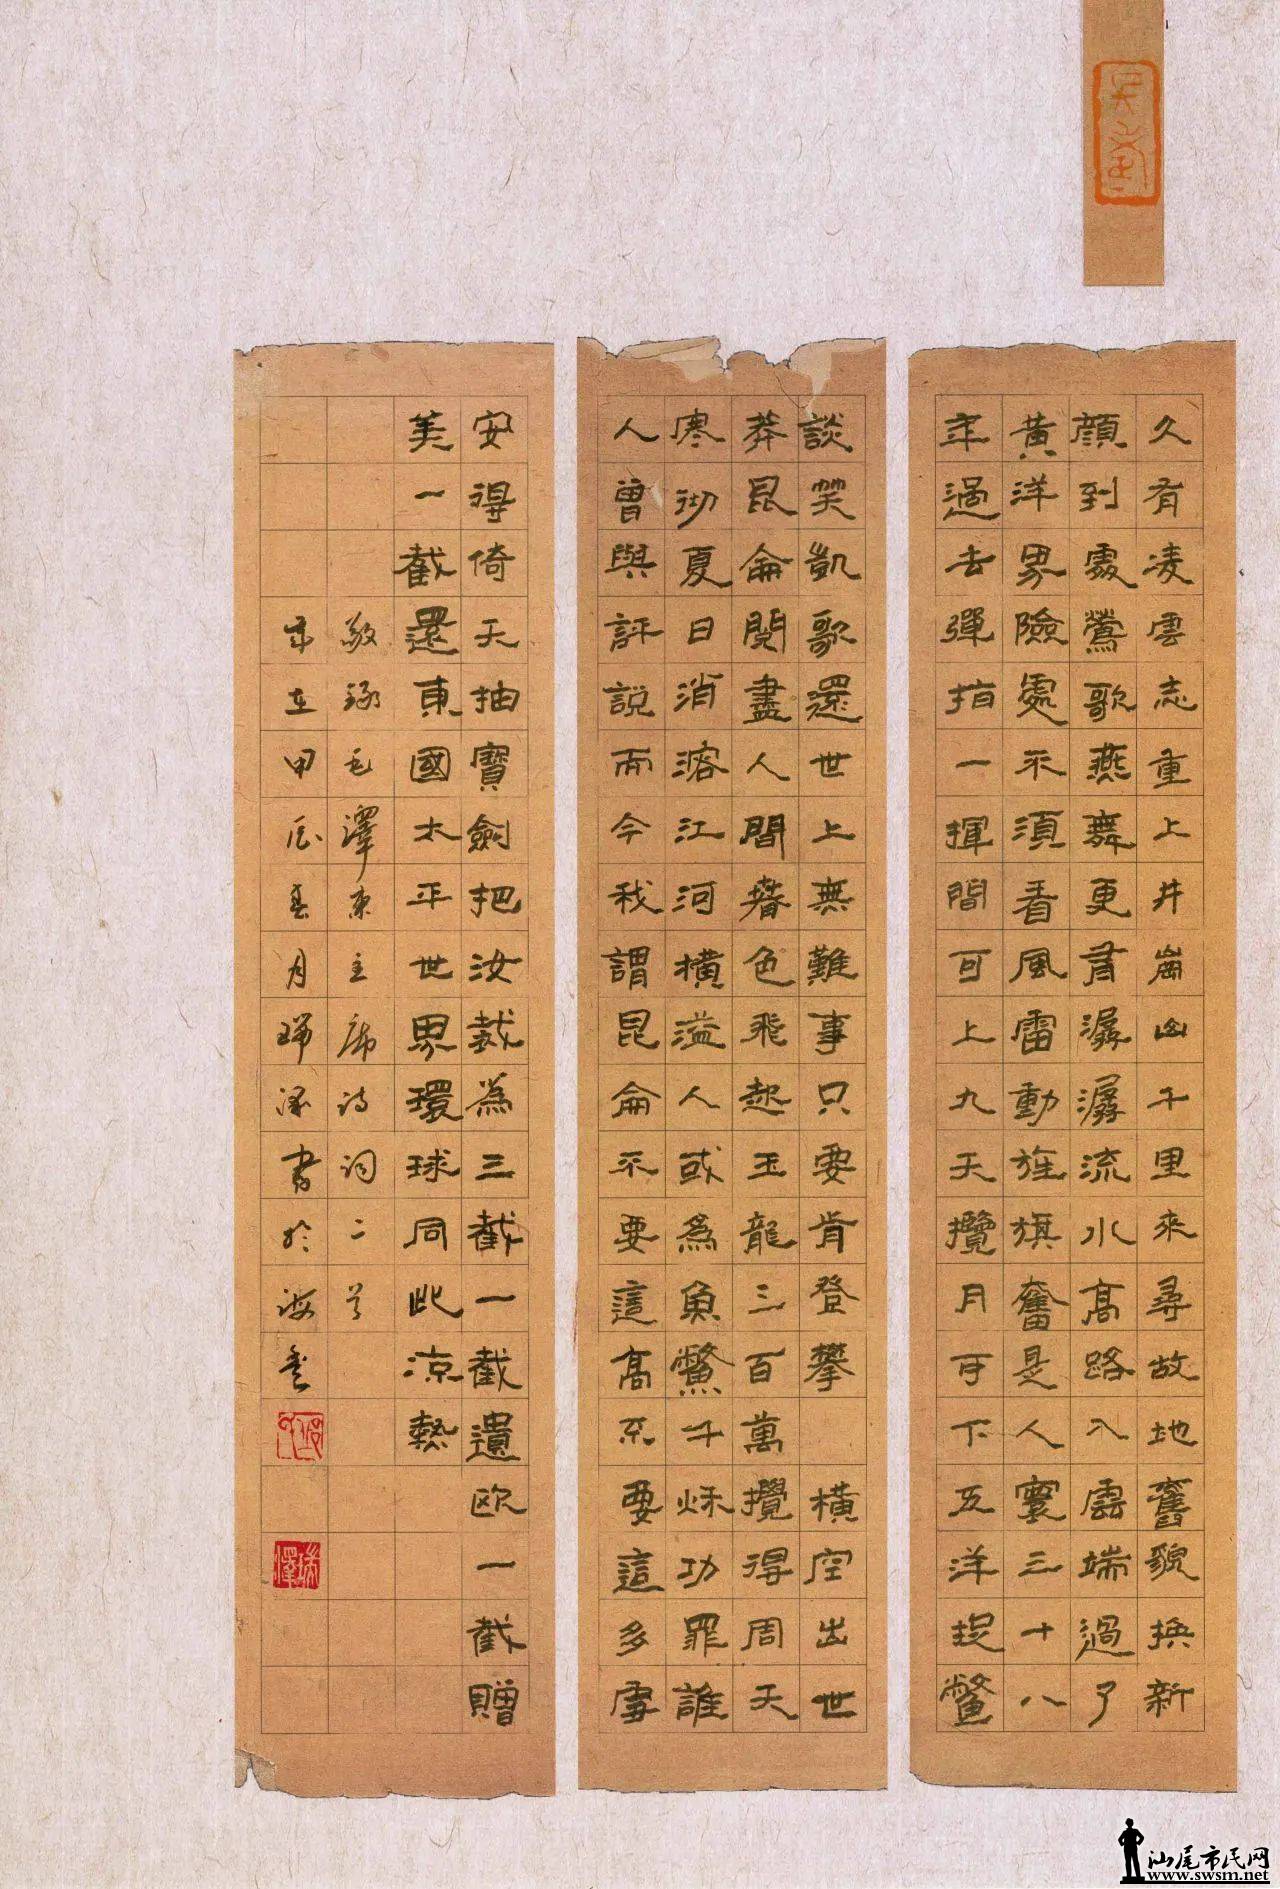 久有凌雲志重上井崗山千里來尋故地舊貌換新
顔到處鶯歌燕舞更有潺潺流水高路入雲端過了
黃洋界險處不須看風雷動旌旗奮是人寰三十八
年過去彈指一揮間可上九天攬月可下五洋捉鱉
談笑凱歌還世上無難事只要肯登攀 橫空出世
莽昆侖閱盡人間春色飛起玉龍三百萬攪得周天
寒徹夏日消溶江河橫溢人或為魚鱉千秋功罪誰
人曾與評說而今我謂昆侖不要這高不要這多雪
安得倚天抽寶劍把汝裁為三截一截遺歐一截贈
美一截還東國太平世界環球同此涼熱
敬錄毛澤東主席詩詞二首
歲在甲辰春月瑞澤書於海豐
汕尾市民网
www.swsm.net